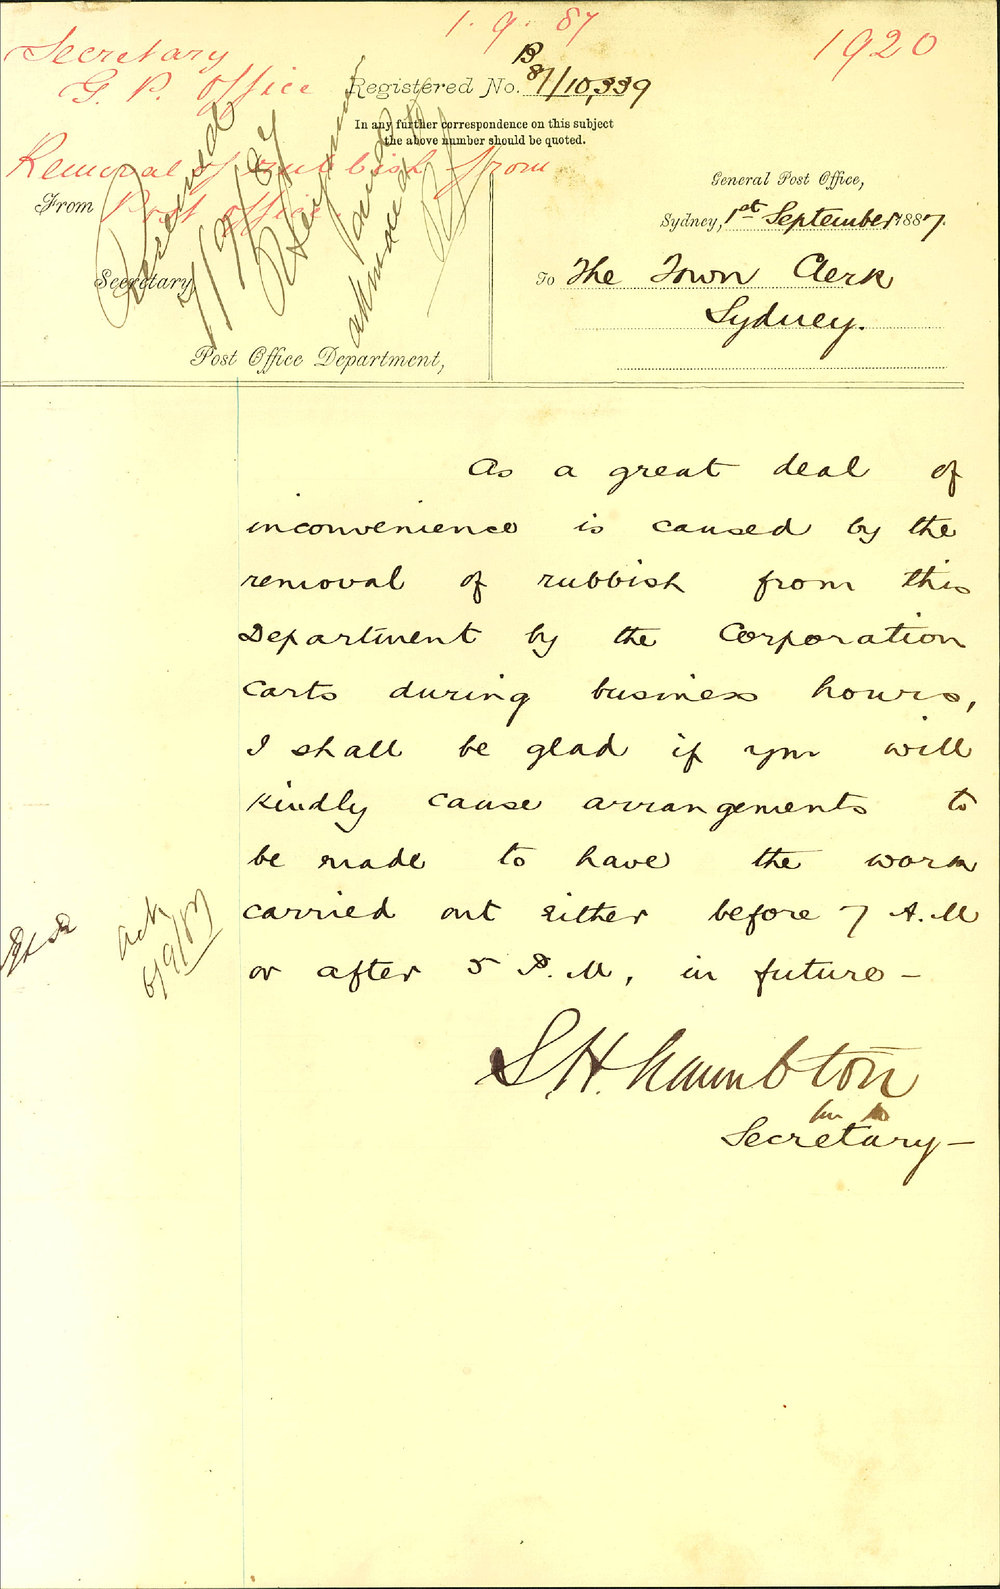 1. 9. 87
1920
Secretary
G. P. Office
Registered No. B 87/10,339
In any further correspondence on this subject
the above number should be quoted.
Removal of rubbish from
Post Office.
From
Secretary
Post Office Department,
General Post Office,
Sydney, 1st September 1887.
To The Town Clerk
Sydney.
As a great deal of
inconvenience is caused by the
removal of rubbish from this
Department by the Corporation
Carts during business hours,
I shall be glad if you will
kindly cause arrangements to
be made to have the work
carried out either before 7 A.M
or after 5 P.M, in future —
ack
6/9/87
S. H. Lambton
Secretary —